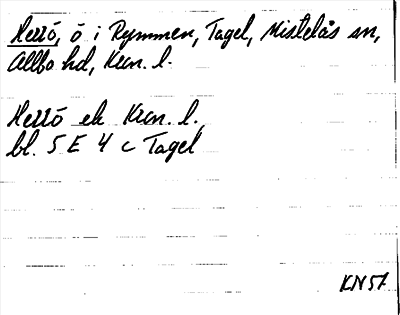 Hertö, ö i Rymmen, Tagel, Mistelås sn,
Allbo hd, Kron. l.
Hertö ek Kron. l.
bl. 5 E 4 c Tagel
KN57